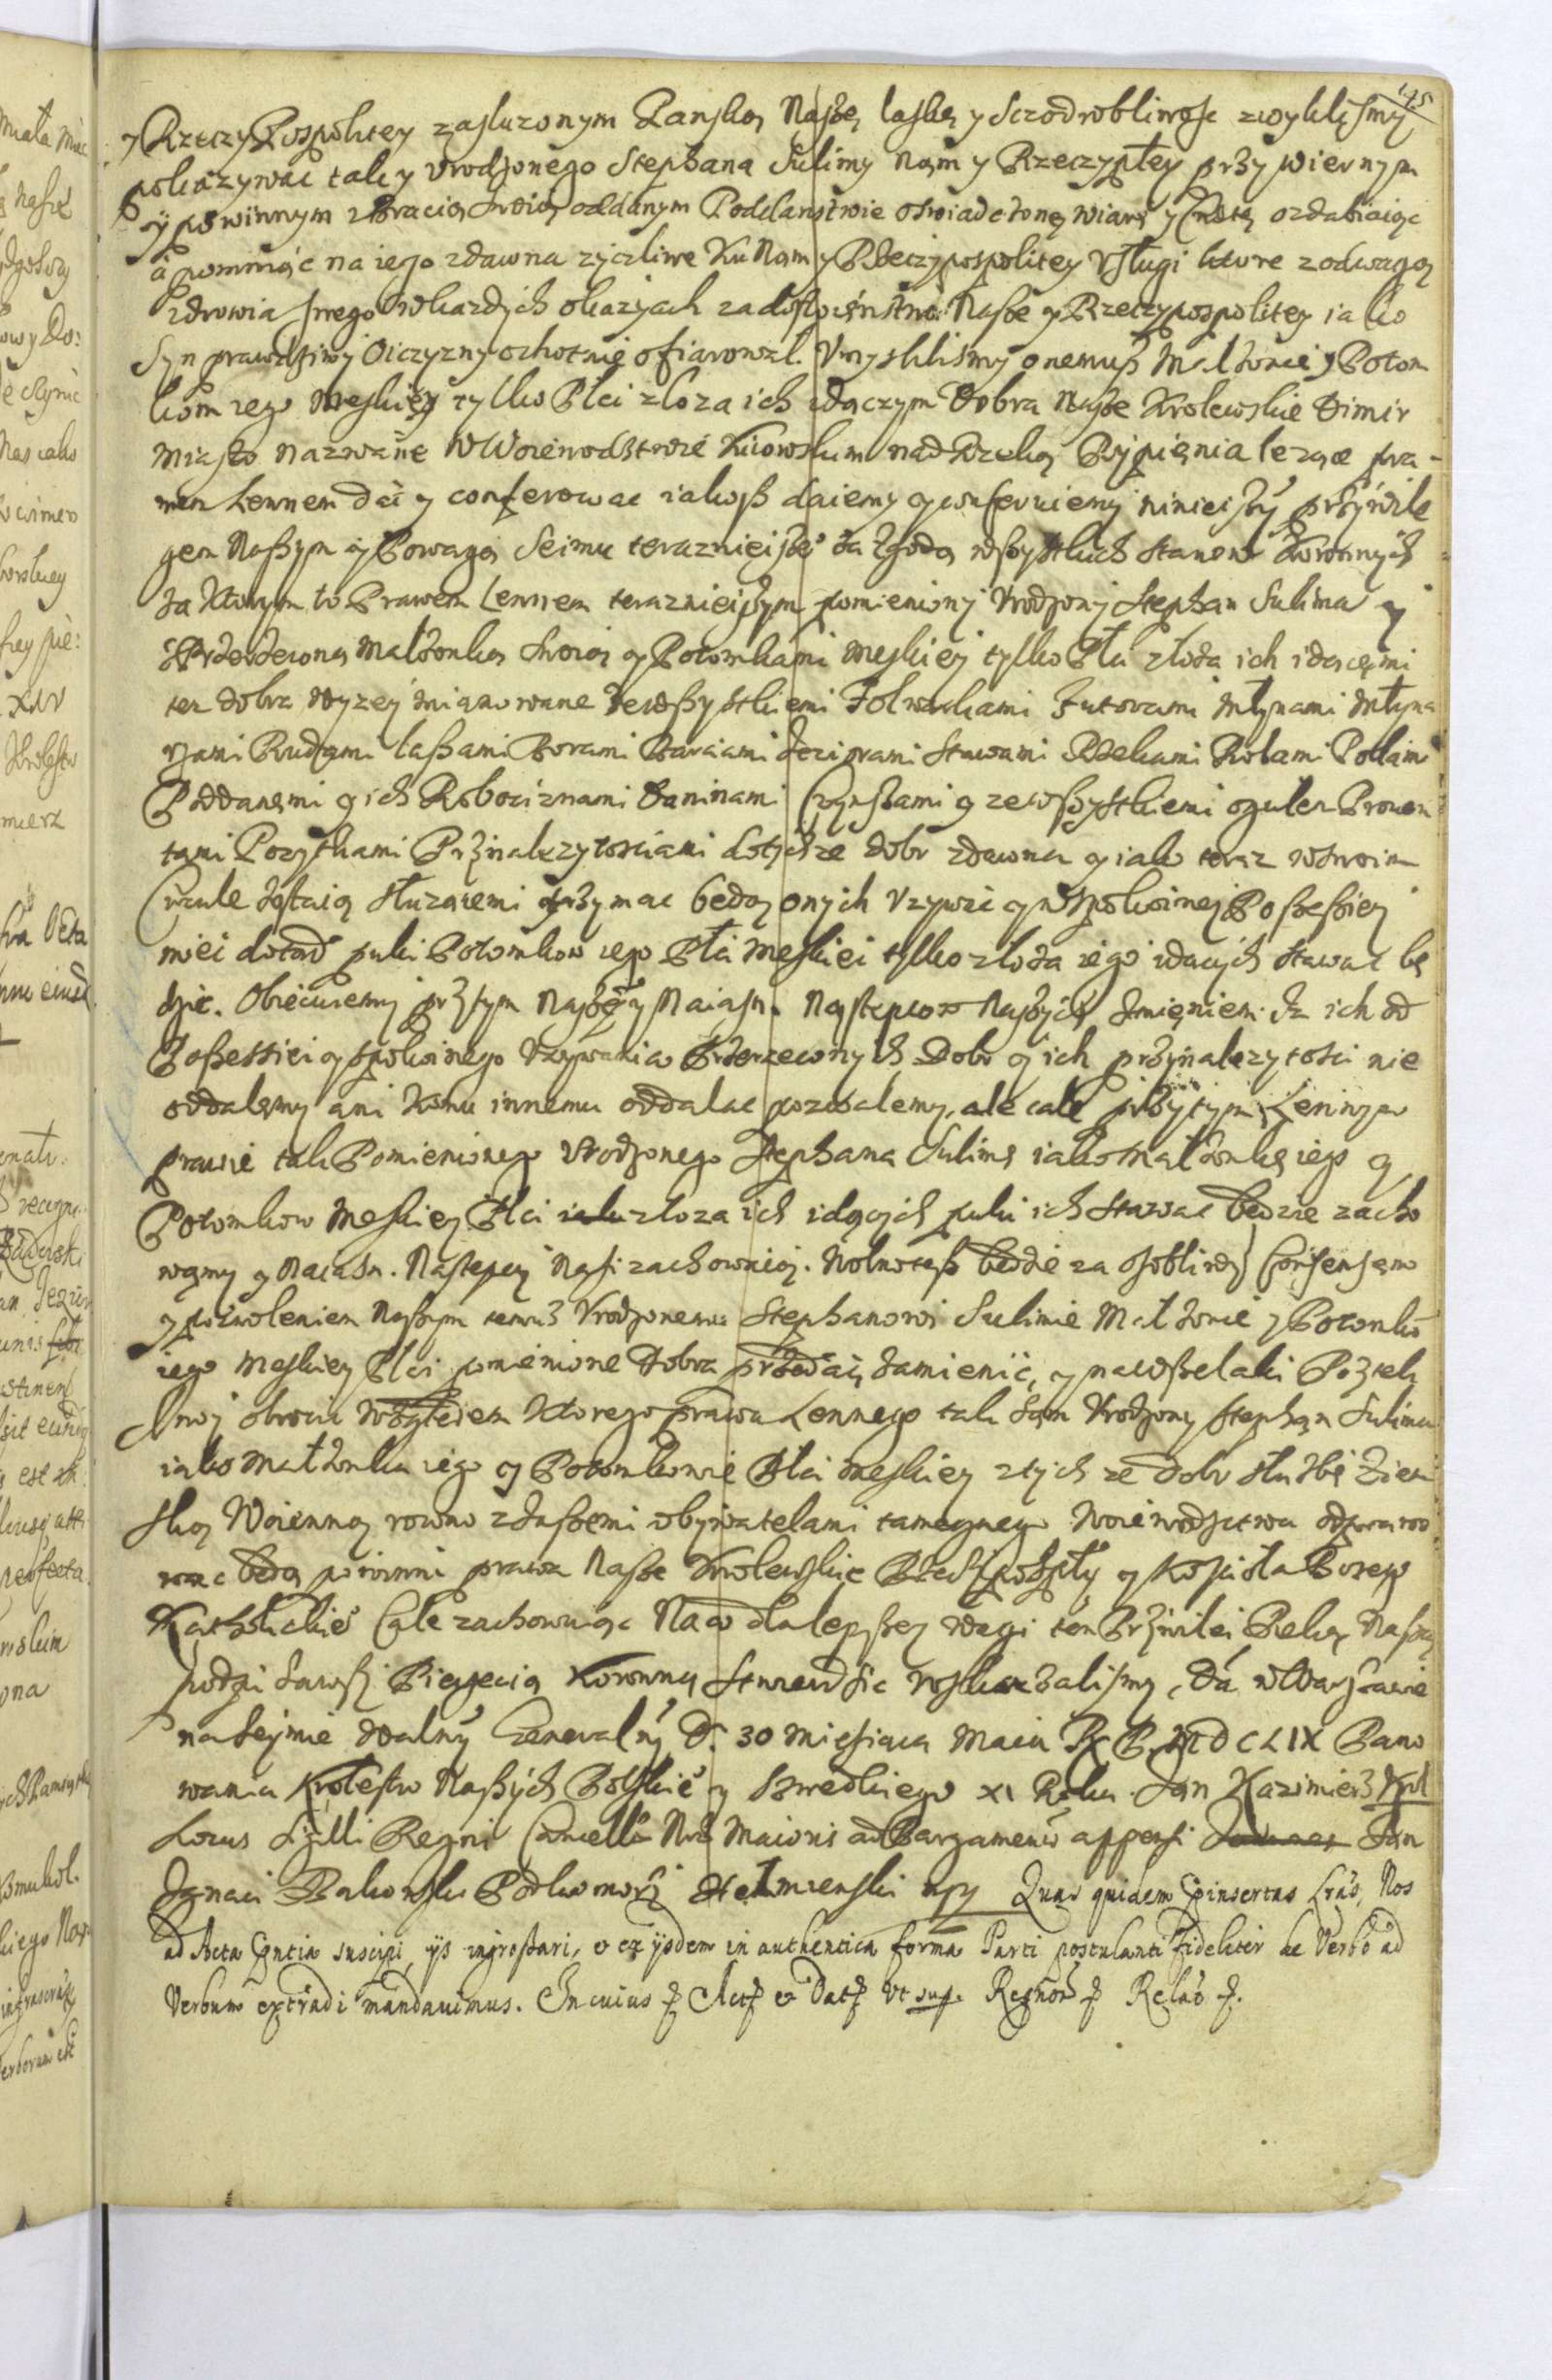 175
y Rzeczy Pospolitey zasluzonym Panską Naszę laskę y sczodrobliwosc zwyklismy
pokazywac tak y Vrodzonego Stephana Sulimy Nam y Rzeczyptey przy wiernym
y powinnym z Bracią Swoią oddanym Poddanstwie oswiadczoną wiarę y Cnotę ozdabiaiąc
a pomniąc na iego zdawna zyczliwe Ku Nam y Rzeczypospolitey Vsługi ktore z odwagą
Zdrowia swego wkazdych okazyach za dostoienstwo Nasze y Rzeczypospolitey iako
Syn prawdziwy Oiczyzny ochotnie ofiarował. Vmyslilismy onemusz Małzonce y Potom
kom iego Meskiey tylko Płci z loza ich idączym Dobra Nasze Krolewskie Dimir
Miasto nazwane W Woiewodstwie Kiiowskim nad Rzeką Rypienia lezące pra-
wem Lennem dac y conferowac iakosz daiemy y conferuiemy ninieiszy przywile
gem Naszym y Powagą Seimu terazniejsze Za Zgodą wszystkich Stanow Koronnych
Za Ktorym to Prawem Lennem terazniejszym pomieniony Vrodzony Stephan Sulima y
z Przerzeconą Małzonką Swoią y Potomkami meskiey tylko Płci z loza ich idącemi
te Dobra wyzey mianowane ze wszystkiemi Folwarkami Futorami Młynami Młyna
rzami Rudami lassami Borami Barciami Jeziorami Stawami Rzekami Rolami Polami
Poddanemi y ich Robociznami Daninami Czynszami y ze wszystkiemi ogulem Prowen
tami Pozytkami Przynalezytosciami do tychze Dobr zdawna y iako teraz w swoim
Czyrkule zostaią służącemi trzymac będą onych Vzywac y w spokoiney Possessiey
miec dotąd puki Potomkow iego Płci Meskiei tylko z loza iego idacych stawac bę
dzie. Obiecuiemy przytym Naszę y Naiasn. Nastepcow Naszych Imieniem Iz ich od
Possessiei y spokoinego Vzywania Przerzeconych Dobr y ich przynalezytosci nie
oddalemy ani Komu innemu oddalac pozwalemy, ale cale przy tym Lennym
prawie tak Pomienionego Vrodzonego Stephana Sulimę iako Małzonkę iego y
Potomkow Meskiey Płci z loza ich idących puki ich stawac bedzie zacho
wamy y Naiasn. Nastepcy Nasi zachowaią. Wolno tesz bedzie za osobliwym Consensem
y pozwoleniem Naszym temusz Vrodzonemu Stephanowi Sulimie Małzonce y Potomko
iego Meskiey Płci pomienione Dobra przedac, zamienic, y na wszelaki Pozytek
Swoy obrocic Względem Ktorego prawa Lennego tak Sam Vrodzony Stephan Sulima
iako Małzonka iego y Potomkowie Płci Meskiey z tych ze Dobr słuzbę Ziem
ską Woienną rowno z Inszemi obywatelami tamecznego Woiewodztwa odprawo
wac będą powinni prawa Nasze Krolewskie Rzeczypospłty y Kosciola Bozego
Katholickie Cale zachowuiąc Na co dla lepszey wagi ten Przywilei Ręką Naszą
podpisawszy Pieczecią Koronną Stwierdzic rozkazalismy, Da w Warszawie
na Seymie Walny Generalny D. 30 Miesiaca Maia R. P. MDCLIX Pano
wania Krolestw Naszych Polskie y Szwedkiego XI Roku Jan Kazimierz Krol
Locus Sigilli Regni Cancella Nrae Maioris ad Pargamenu appensi Jan
Ignaci Bakowski Podkomorzy Hełminski mpp Quas quidem Cpinsertas Lras, Nos
ad Acta Cpntia suscipi, ijs ingrossari, & ex ijsdem in authentica forma Parti postulanti fideliter de Verbo ad
Verbum extradi mandavimus. In cuius Act Dat Vt sup. Regnor Relao